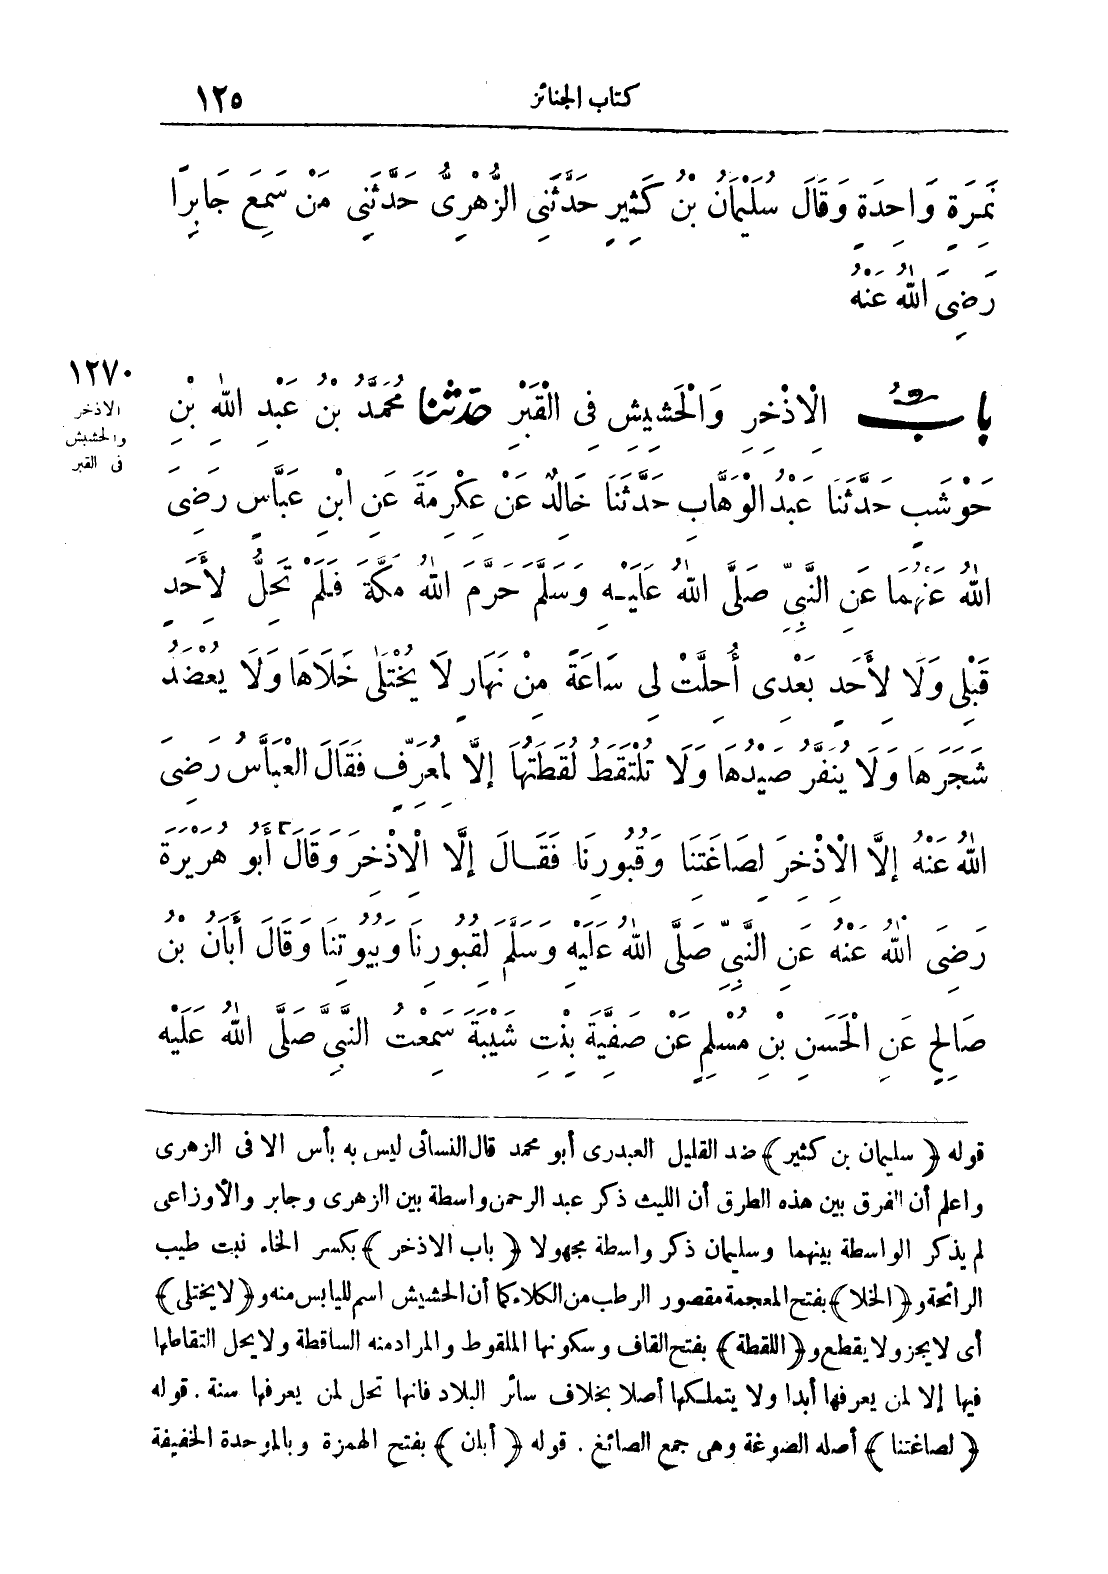 كتاب الجنائز ١٢٥
نَمِرَةٍ وَاحِدَةٍ وَقَالَ سُلَيْمَانُ بْنُ كَثِيرٍ حَدَّثَنِى الزُّهْرِىُّ حَدَّثَنِى مَنْ سَمِعَ جَابِرًا
رَضِىَ اللهُ عَنْهُ
١٢٧٠
الاذخر
والحشيش
فى القبر
بابُ الْإِذْخِرِ وَالْحَشِيشِ فِى الْقَبْرِ حدثنا مُحَمَّدُ بْنُ عَبْدِ اللهِ بْنِ
حَوْشَبٍ حَدَّثَنَا عَبْدُ الْوَهَّابِ حَدَّثَنَا خَالِدٌ عَنْ عِكْرِمَةَ عَنِ ابْنِ عَبَّاسٍ رَضِىَ
اللهُ عَنْهُمَا عَنِ النَّبِىِّ صَلَّى اللهُ عَلَيْهِ وَسَلَّمَ حَرَّمَ اللهُ مَكَّةَ فَلَمْ تَحِلَّ لِأَحَدٍ
قَبْلِى وَلَا لِأَحَدٍ بَعْدِى أُحِلَّتْ لِى سَاعَةً مِنْ نَهَارٍ لَا يُخْتَلَى خَلَاهَا وَلَا يُعْضَدُ
شَجَرُهَا وَلَا يُنَفَّرُ صَيْدُهَا وَلَا تُلْتَقَطُ لُقَطَتُهَا إِلَّا لِمُعَرِّفٍ فَقَالَ الْعَبَّاسُ رَضِىَ
اللهُ عَنْهُ إِلَّا الْإِذْخِرَ لِصَاغَتِنَا وَقُبُورِنَا فَقَالَ إِلَّا الْإِذْخِرَ وَقَالَ أَبُو هُرَيْرَةَ
رَضِىَ اللهُ عَنْهُ عَنِ النَّبِىِّ صَلَّى اللهُ عَلَيْهِ وَسَلَّمَ لِقُبُورِنَا وَبُيُوتِنَا وَقَالَ أَبَانُ بْنُ
صَالِحٍ عَنِ الْحَسَنِ بْنِ مُسْلِمٍ عَنْ صَفِيَّةَ بِنْتِ شَيْبَةَ سَمِعْتُ النَّبِىَّ صَلَّى اللهُ عَلَيْهِ
قوله ﴿سليمان بن كثير﴾ ضد القليل العبدرى أبو محمد قال النسائى ليس به بأس الا فى الزهرى
واعلم أن الفرق بين هذه الطرق أن الليث ذكر عبد الرحمن واسطة بين الزهرى وجابر والأوزاعى
لم يذكر الواسطة بينهما وسليمان ذكر واسطة مجهولا ﴿باب الاذخر﴾ بكسر الخاء نبت طيب
الرائحة و﴿الخلا﴾ بفتح المعجمة مقصور الرطب من الكلاء كما أن الحشيش اسم لليابس منه و﴿لا يختلى﴾
أى لا يجز ولا يقطع و﴿اللقطة﴾ بفتح القاف وسكونها الملقوط والمراد منه الساقطة ولا يحل التقاطها
فيها إلا لمن يعرفها أبدا ولا يتملكها أصلا بخلاف سائر البلاد فانها تحل لمن يعرفها سنة . قوله
﴿لصاغتنا﴾ أصله الصوغة وهى جمع الصائغ . قوله ﴿أبان﴾ بفتح الهمزة وبالموحدة الخفيفة